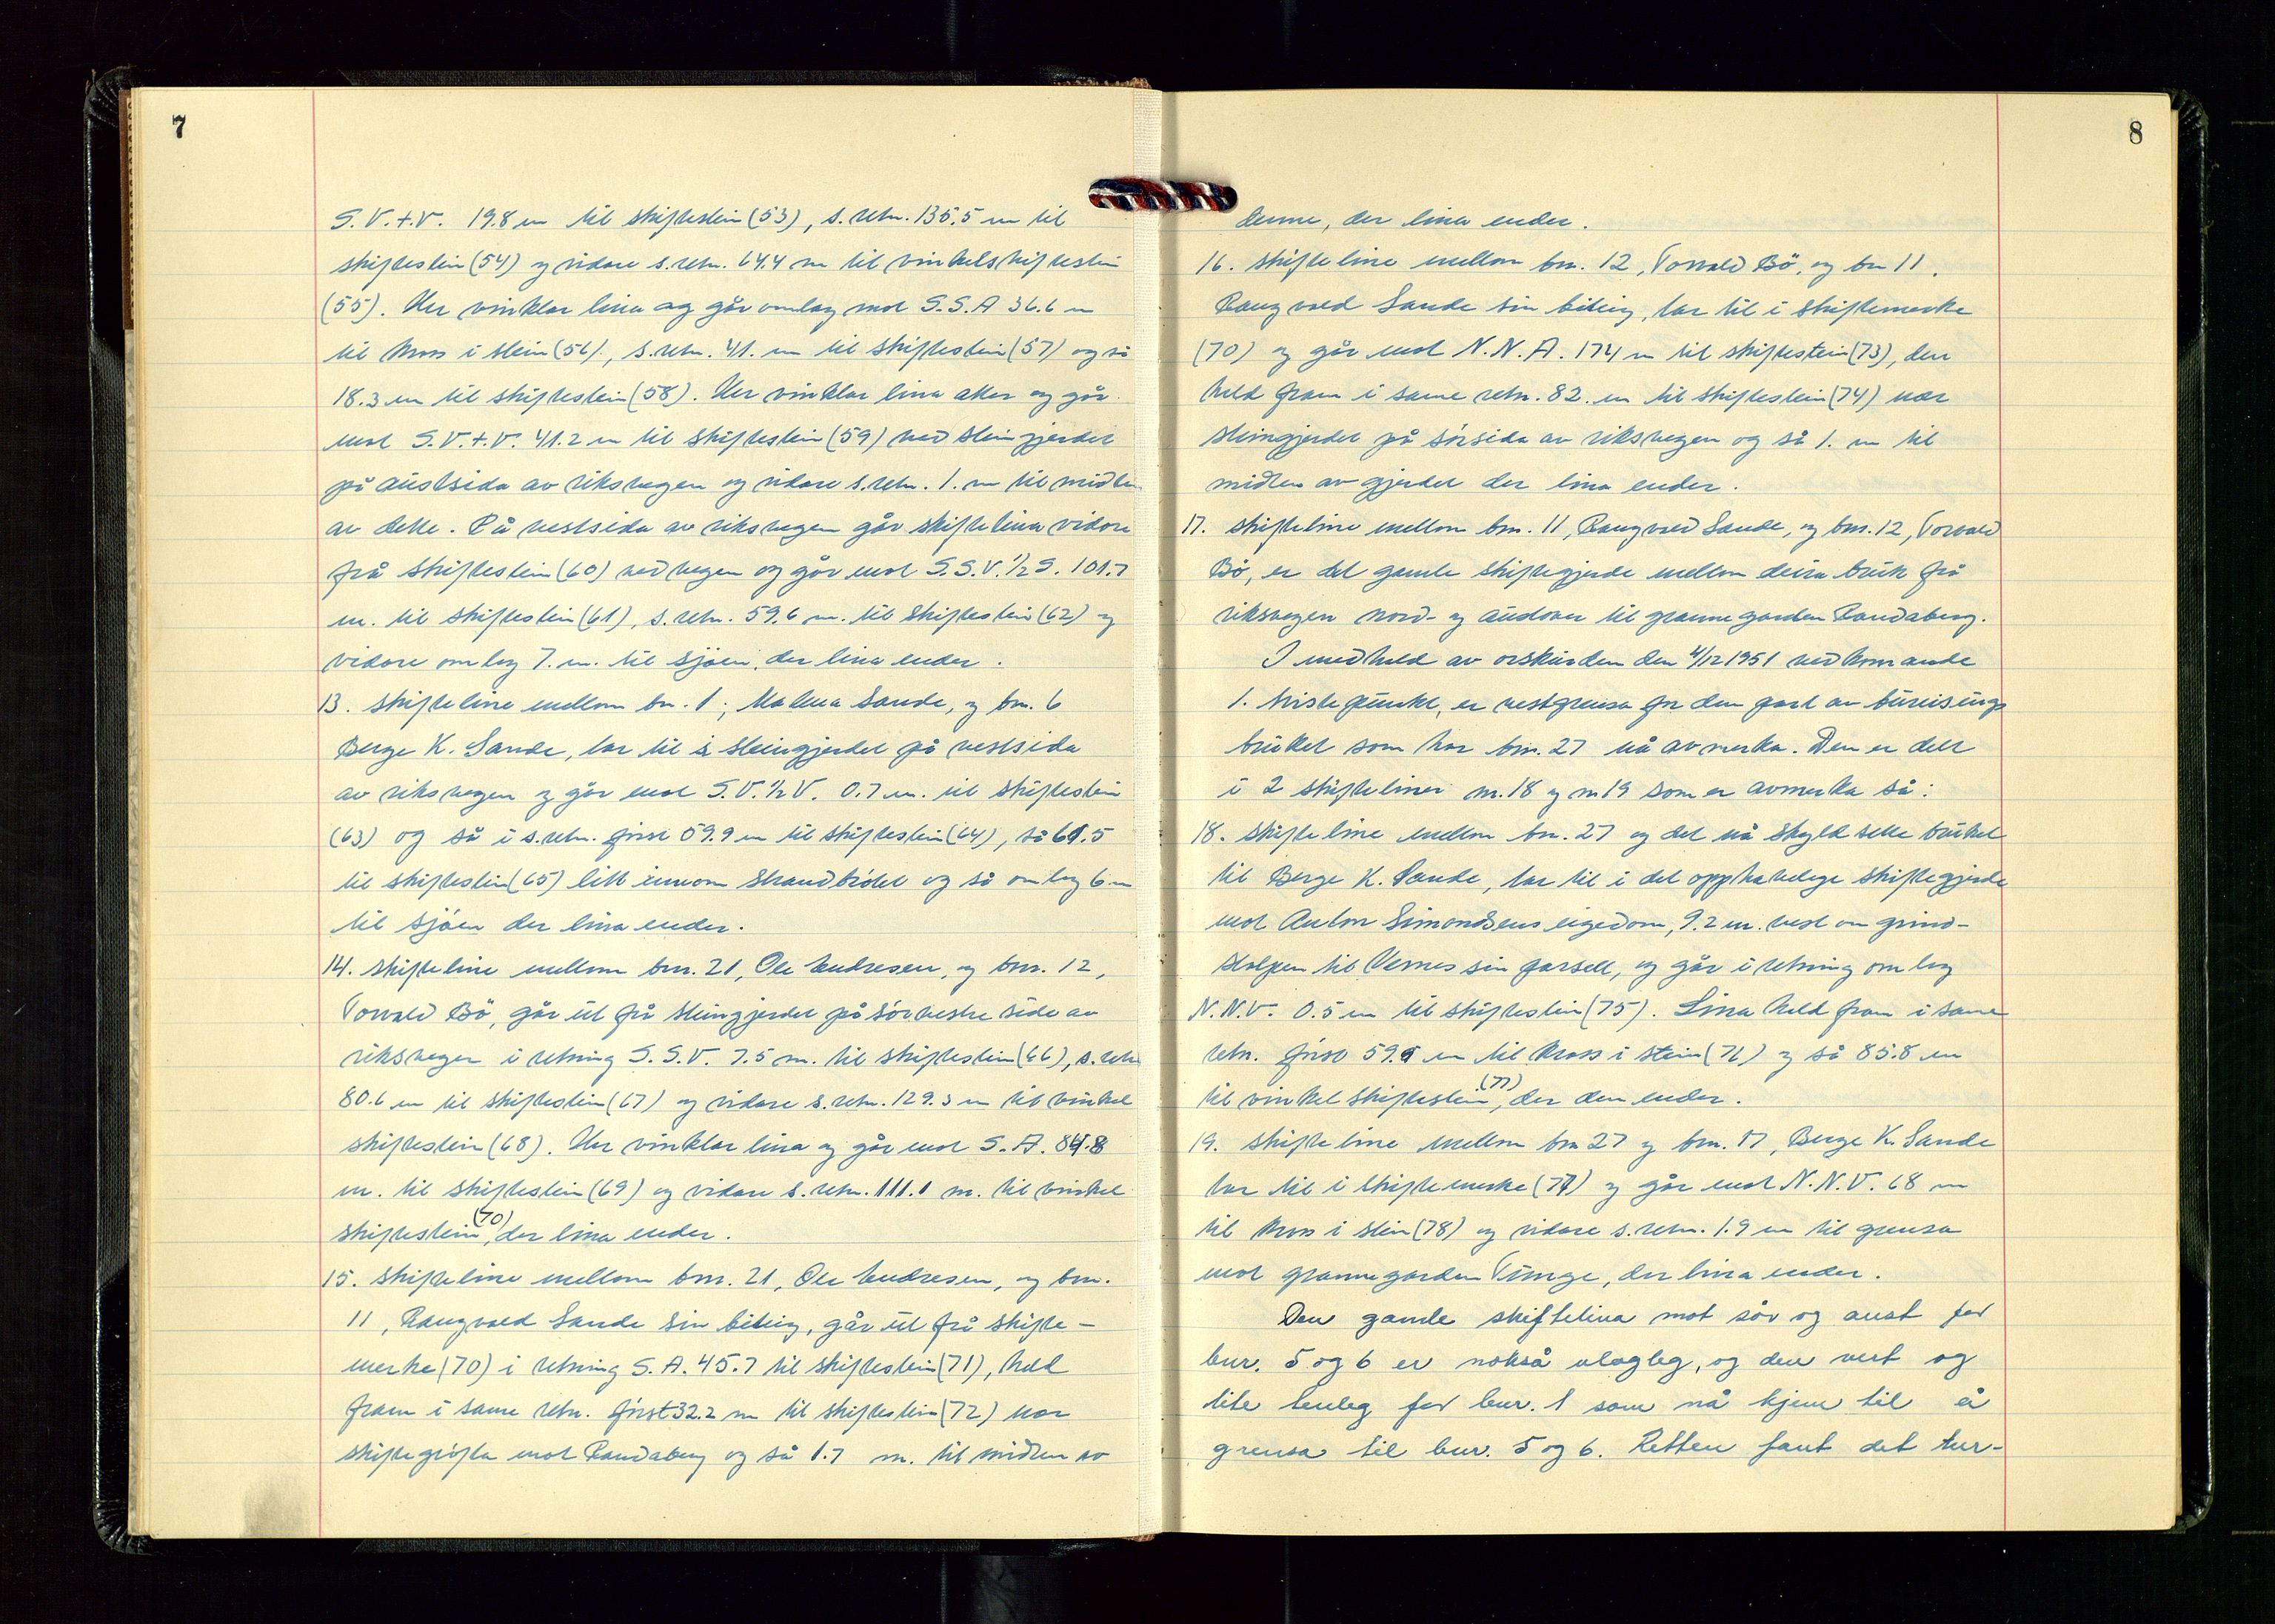 7
S.V.t.V. 19.8 m til skiftestein (53), s. retn. 135.5 m til
skiftestein (54) og vidare s. retn. 64.4 m til vinkelskiftestein
(55). Her vinklar lina og går omlag mot S.S.A 36.6 m
til kross i stein (56), s. retn. 41. m til skiftestein (57) og så
18.3 m til skiftestein (58). Her vinklar lina atter og går
mot S.V.t.V. 41.2 m til skiftestein (59) ved steingjerdet
på austsida av riksvegen og vidare s. retn. 1. m til midten
av dette. På vestsida av riksvegen går skiftelina vidare
frå skiftestein (60) ved vegen og går mot S.S.V. 1/2 S. 101.7
m. til skiftestein (61), s. retn. 59.6 m. til skiftestein (62) og
vidare omlag 7. m. til sjøen, der lina ender.
13. Skifteline mellom bn. 1, Malena Sande, og bn. 6
Berge K. Sande, tar til i steingjerdet på vestsida
av riksvegen og går mot S.V. 1/2 V. 0.7 m. til skiftestein
(63) og så i s. retn. først 59.9 m til skiftestein (64), så 61.5
til skiftestein (65) litt innom strandbrotet og så omlag 6 m
til sjøen der lina ender.
14. Skifteline mellom bnr. 21, Ole Endresen, og bnr. 12,
Torvald Bö, går ut frå steingjerdet på sörvestre side av
riksvegen i retning S.S.V. 7.5 m. til skiftestein (66), s. retn
80.6 m til skiftestein (67) og vidare s. retn. 129.3 m til vinkel
skiftestein (68). Her vinklar lina og går mot S.A. 84.8
m. til skiftestein (69) og vidare s. retn. 111.1 m. til vinkel
skiftestein (70), der lina ender.
15. Skifteline mellom bnr. 21, Ole Endresen, og bnr.
11, Rangvald Sande sin biteig, går ut frå skifte-
merke (70) i retning S.A. 45.7 til skiftestein (71), held
fram i same retn. först 32.2 m til skiftestein (72) nær
skiftegröfta mot Randaberg og så 1.7 m. til midten av
8
denne, der lina ender.
16. Skifteline mellom bn. 12, Torvald Bö, og bn 11,
Rangvald Sande sin biteig, tar til i skiftemerke
(70) og går mot N.N.A. 174 m til skiftestein (73), den
held fram i same retn. 82. m til skiftestein (74) nær
steingjerdet på sörsida av riksvegen og så 1. m til
midten av gjerdet der lina ender.
17. Skifteline mellom bnr. 11, Rangvald Sande, og bnr. 12, Torvald
Bö, er det gamle skiftegjerde mellom deira bruk frå
riksvegen nord- og austover til grannegarden Randaberg.
I medhold av orskurden den 4/12 1951 vedkomande
1. tvistepunkt, er vestgrensa for den part av bureisings
bruket som har bnr. 27 nå avmerka. Den er delt
i 2 skifteliner nr. 18 og nr 19 som er avmerka så:
18. Skifteline mellom bnr. 27 og det nå skyldsette bruket
til Berge K. Sande, tar til i det opphavelege skiftegjerde
mot Anton Simonsens eigedom, 9.2 m. vest om grind-
stolpen til Vernes sin parsell, og går i retning omlag
N.N.V. 0.5 m til skiftestein (75). Lina held fram i same
retn. först 59.5 m til kross i stein (76) og så 85.8 m
til vinkel skiftestein (77), der den ender.
19. Skifteline mellom bn 27 og bnr. 17, Berge K. Sande
tar til i skiftemerke (77) og går mot N.N.V. 68 m
til kross i stein (78) og vidare s. retn. 1.9 m til grensa
mot grannegarden Tunge, der lina ender.
Den gamle skiftelina mot sör og aust for
bnr. 5 og 6 er nokså ulagleg, og den vert og
lite tenleg for bnr. 1 som nå kjem til å
grensa til bnr. 5 og 6. Retten fant det tur-